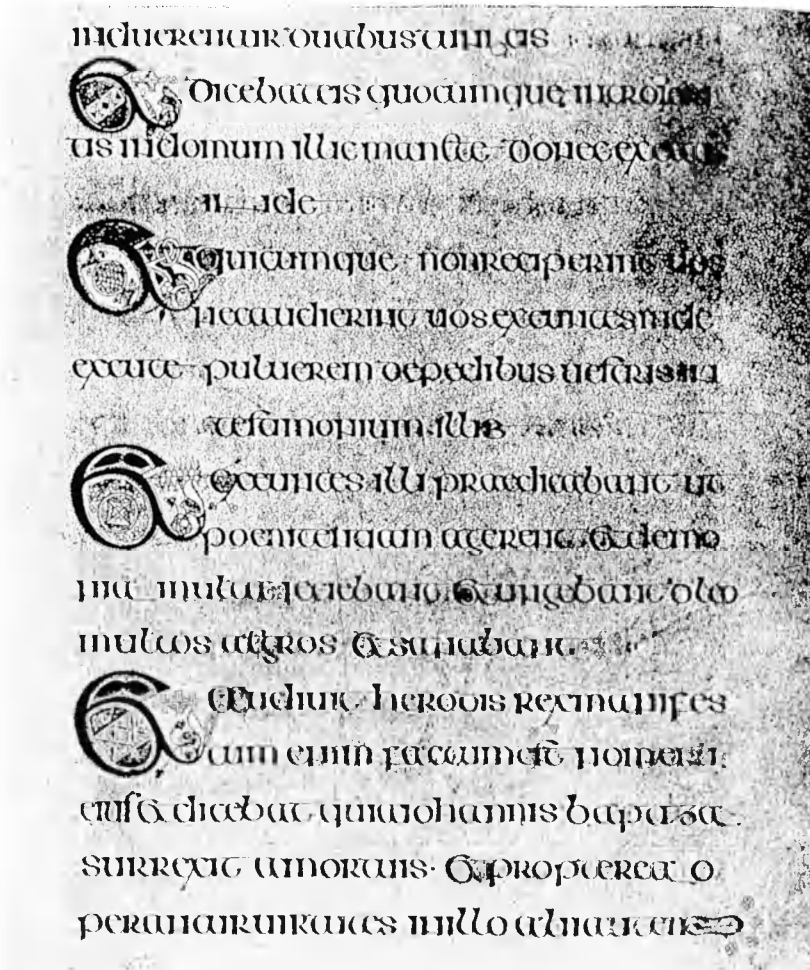 induerentur duabus tunicis
Et dicebat eis quocumque introieri
tis in domum illic manete donec exeatis
inde
Et quicumque non reciperint uos
nec audierint uos exeuntes inde
excutite puluerem de pedibus uestris in
testimonium illis
Et exeuntes illi praedicabant ut
poenitentiam agerent et demo
nia multa eiciebant et ungebant oleo
multos aegros et sanabant
Et audiuit herodis rex manifes
tum enim factum est nomen
eius et dicebat quia iohannis baptiza
surrexit a mortuis et propterea o
perantur uirtutes in illo alii autem